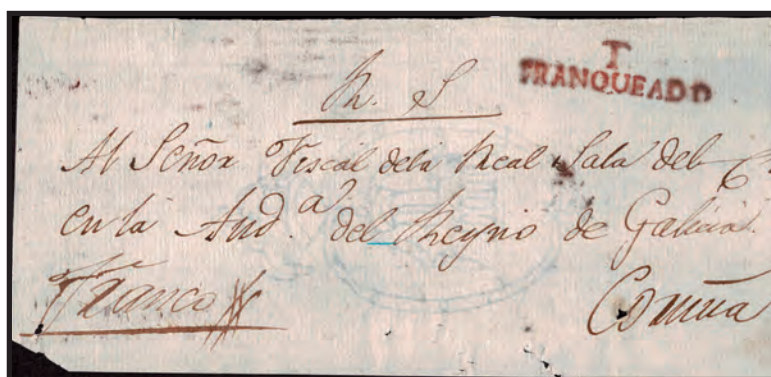 R. S.
T
FRANQUEADO
Al Señor Fiscal dela Real Sala del C
en la Aud.a del Reyno de Galicia.
Franco
Coruña